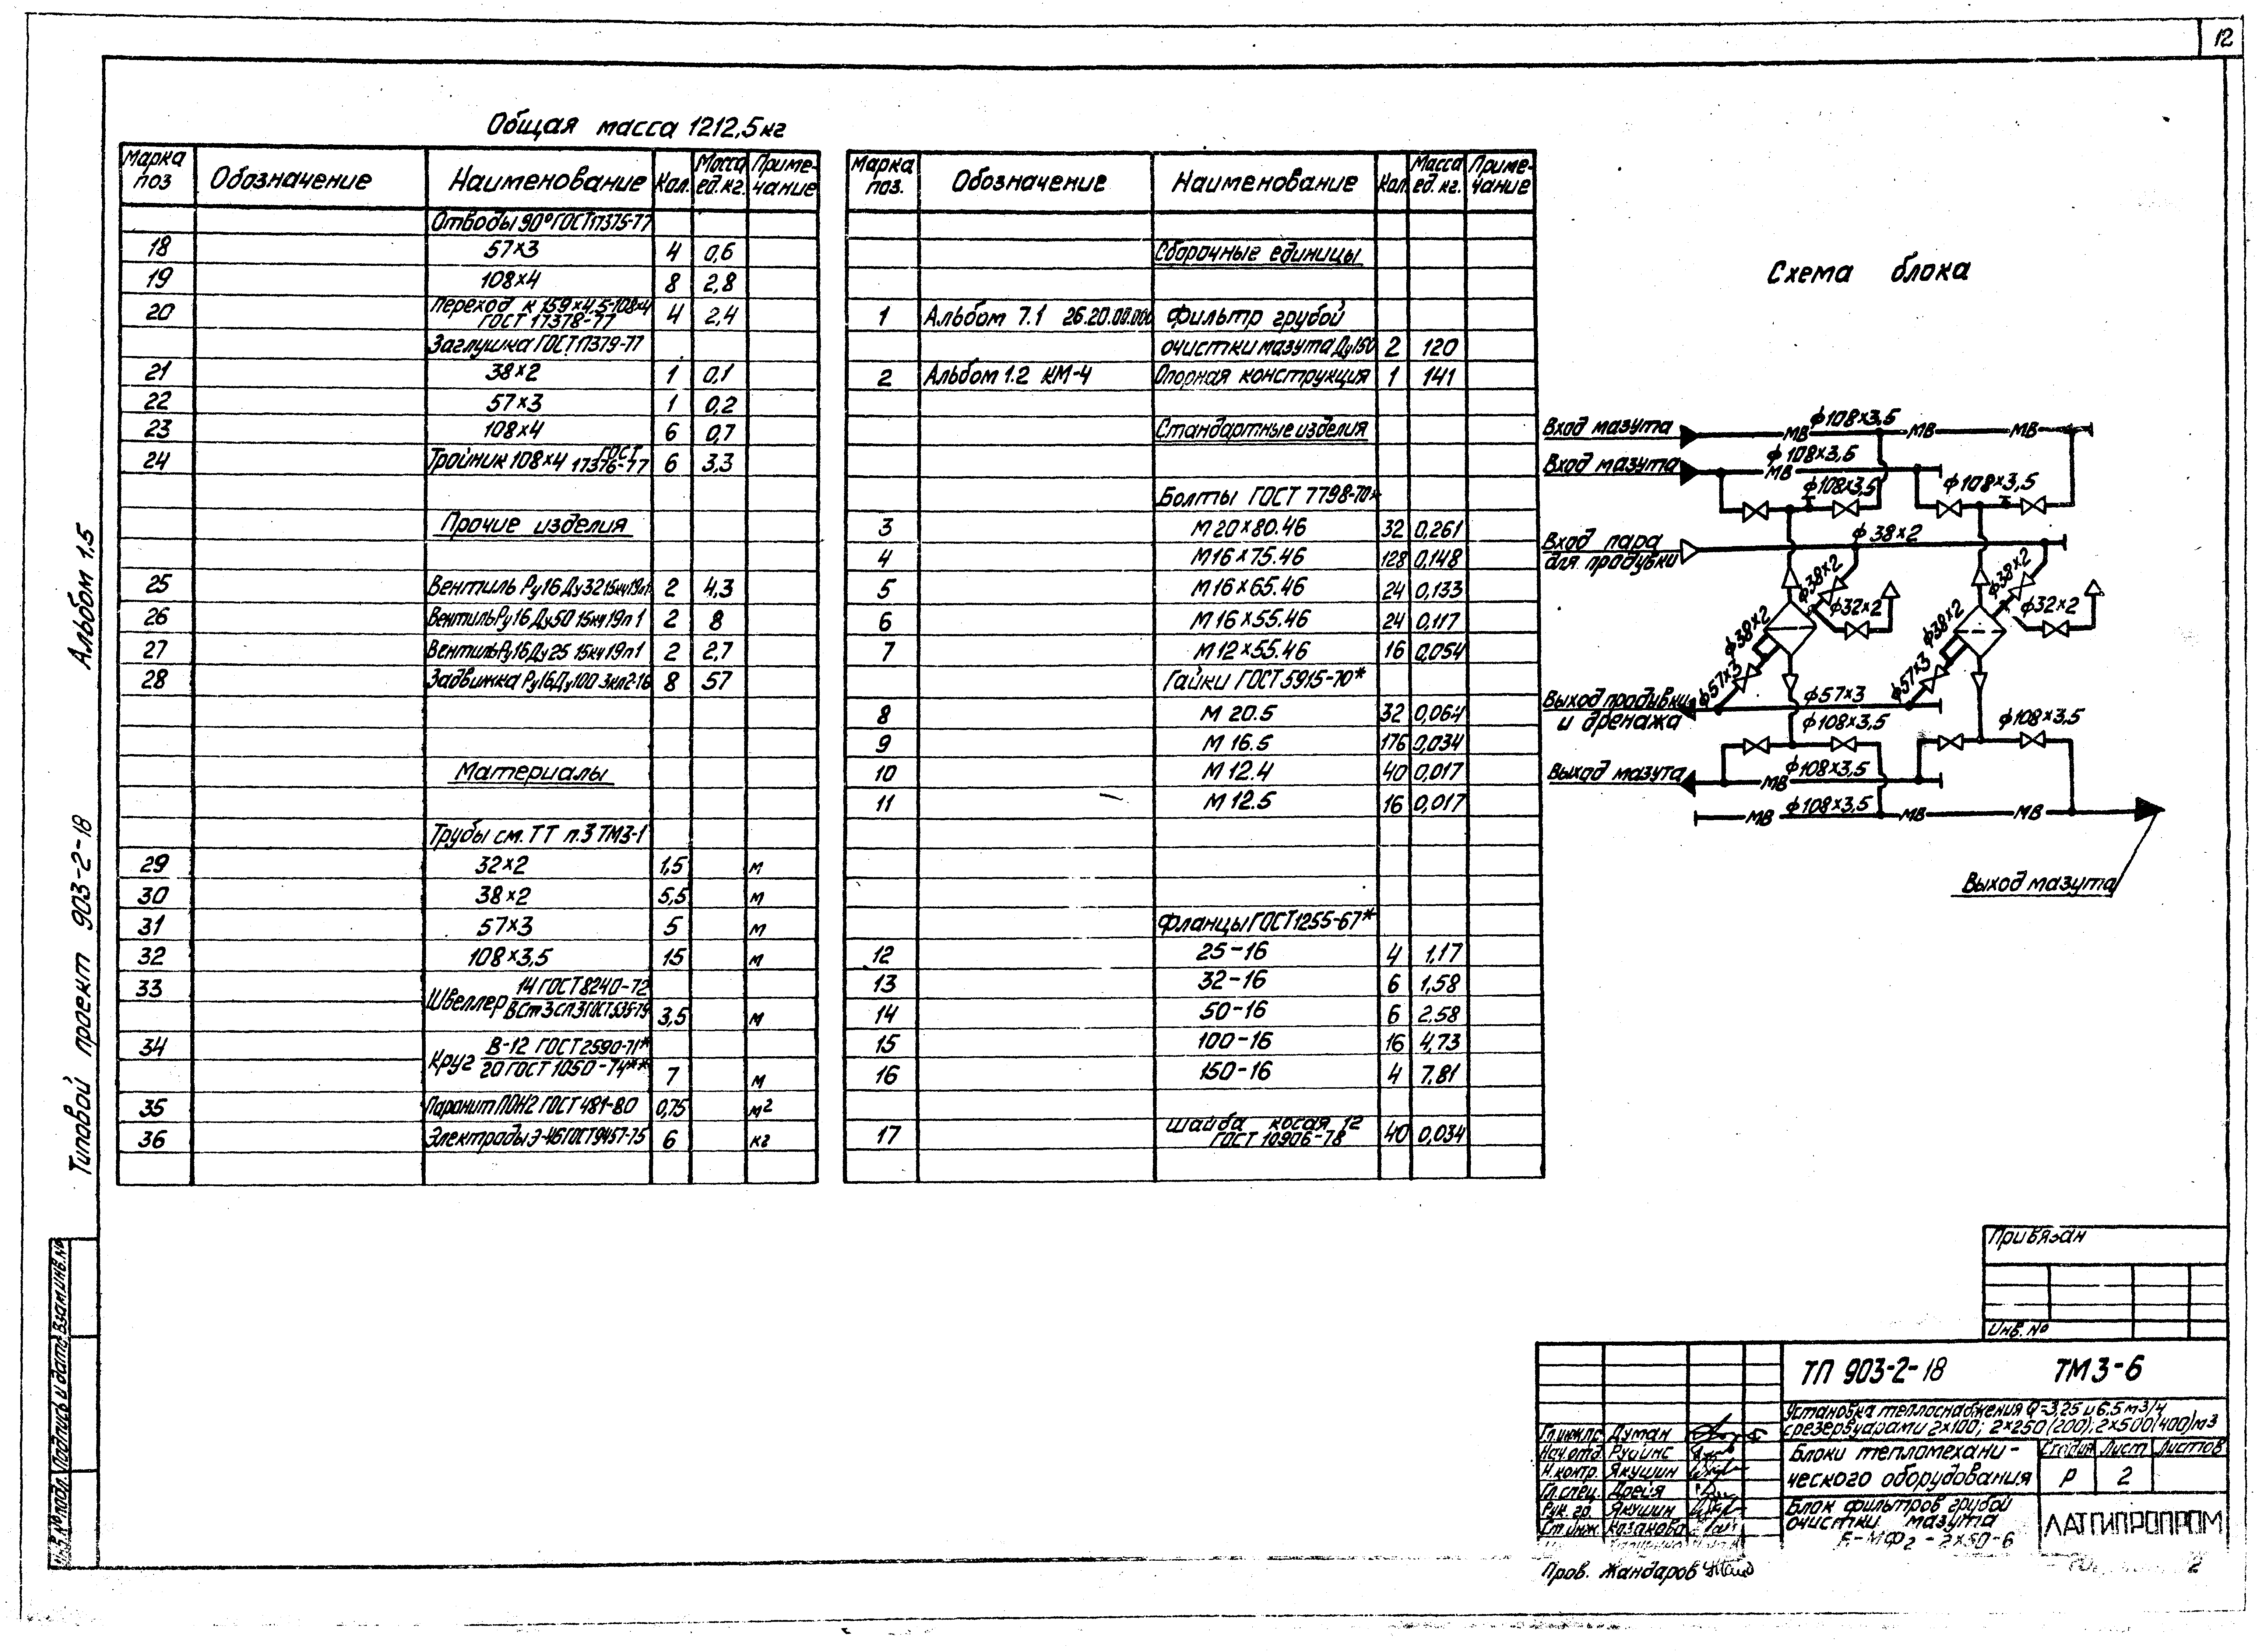 12
Общая масса 1212,5кг
Марка поз Обозначение Наименование Кол. Масса ед.кг. Приме-чание
Отводы 90° ГОСТ 17375-77
18 57×3 4 0,6
19 108×4 8 2,8
20 Переход К 159×4,5-108×4 ГОСТ 17378-77 4 2,4
Заглушка ГОСТ 17379-77
21 38×2 1 0,1
22 57×3 1 0,2
23 108×4 6 0,7
24 Тройник 108×4 ГОСТ 17376-77 6 3,3
Прочие изделия
25 Вентиль Ру16 Ду32 15кч19п1 2 4,3
26 Вентиль Ру16 Ду50 15кч19п1 2 8
27 Вентиль Ру16 Ду25 15кч19п1 2 2,7
28 Задвижка Ру16 Ду100 3кл2-16 8 57
Материалы
Трубы см. ТТ п.3 ТМ3-1
29 32×2 1,5 м
30 38×2 5,5 м
31 57×3 5 м
32 108×3,5 15 м
33 Швеллер 14 ГОСТ 8240-72
ВСт3сп3 ГОСТ 535-79 3,5 м
34 Круг В-12 ГОСТ 2590-71*
20 ГОСТ 1050-74** 7 м
35 Паронит ПОН2 ГОСТ 481-80 0,75 м2
36 Электроды Э-46 ГОСТ 9457-75 6 кг
Марка поз. Обозначение Наименование Кол Масса ед.кг. Приме-чание
Сборочные единицы
1 Альбом 7.1 26.20.00.000 Фильтр грубой
очистки мазута Ду150 2 120
2 Альбом 1.2 КМ-4 Опорная конструкция 1 141
Стандартные изделия
Болты ГОСТ 7798-70*
3 М20×80.46 32 0,261
4 М16×75.46 128 0,148
5 М16×65.46 24 0,133
6 М16×55.46 24 0,117
7 М12×55.46 16 0,054
Гайки ГОСТ 5915-70*
8 М 20.5 32 0,064
9 М 16.5 176 0,034
10 М 12.4 40 0,017
11 М 12.5 16 0,017
Фланцы ГОСТ 1255-67*
12 25-16 4 1,17
13 32-16 6 1,58
14 50-16 6 2,58
15 100-16 16 4,73
16 150-16 4 7,81
17 Шайба косая 12 ГОСТ 10906-78 40 0,034
Схема блока
Вход мазута
ϕ108×3,5
МВ МВ МВ
Вход мазута
ϕ108×3,5
МВ
ϕ108×3,5
ϕ108×3,5
Вход пара
для продувки
ϕ38×2
ϕ38×2
ϕ38×2
ϕ32×2
ϕ32×2
ϕ38×2
ϕ38×2
ϕ57×3
ϕ57×3
Выход продувки
и дренажа
ϕ57×3
ϕ108×3,5
ϕ108×3,5
Выход мазута
МВ
ϕ108×3,5
МВ ϕ108×3,5 МВ МВ
Выход мазута
Альбом 1.5
Типовой проект 903-2-18
Взам.инв.№
Подпись и дата
Инв.№подл.
Привязан
Инв. №
ТП 903-2-18 ТМ3-6
Установка теплоснабжения Q=3,25 и 6,5 м3/ч
с резервуарами 2×100; 2×250(200); 2×500(400)м3
Гл.инж.пр. Думан
Нач.отд. Руйинс
Н.контр. Якушин
Гл.спец. Дрейя
Рук. гр. Якушин
Ст.инж. Казакова
Пров. Жандаров
Блоки тепломехани-
ческого оборудования
Стадия Лист Листов
Р 2
Блок фильтров грубой
очистки мазута
Б-МФг-2×50-6
ЛАТГИПРОПРОМ
2